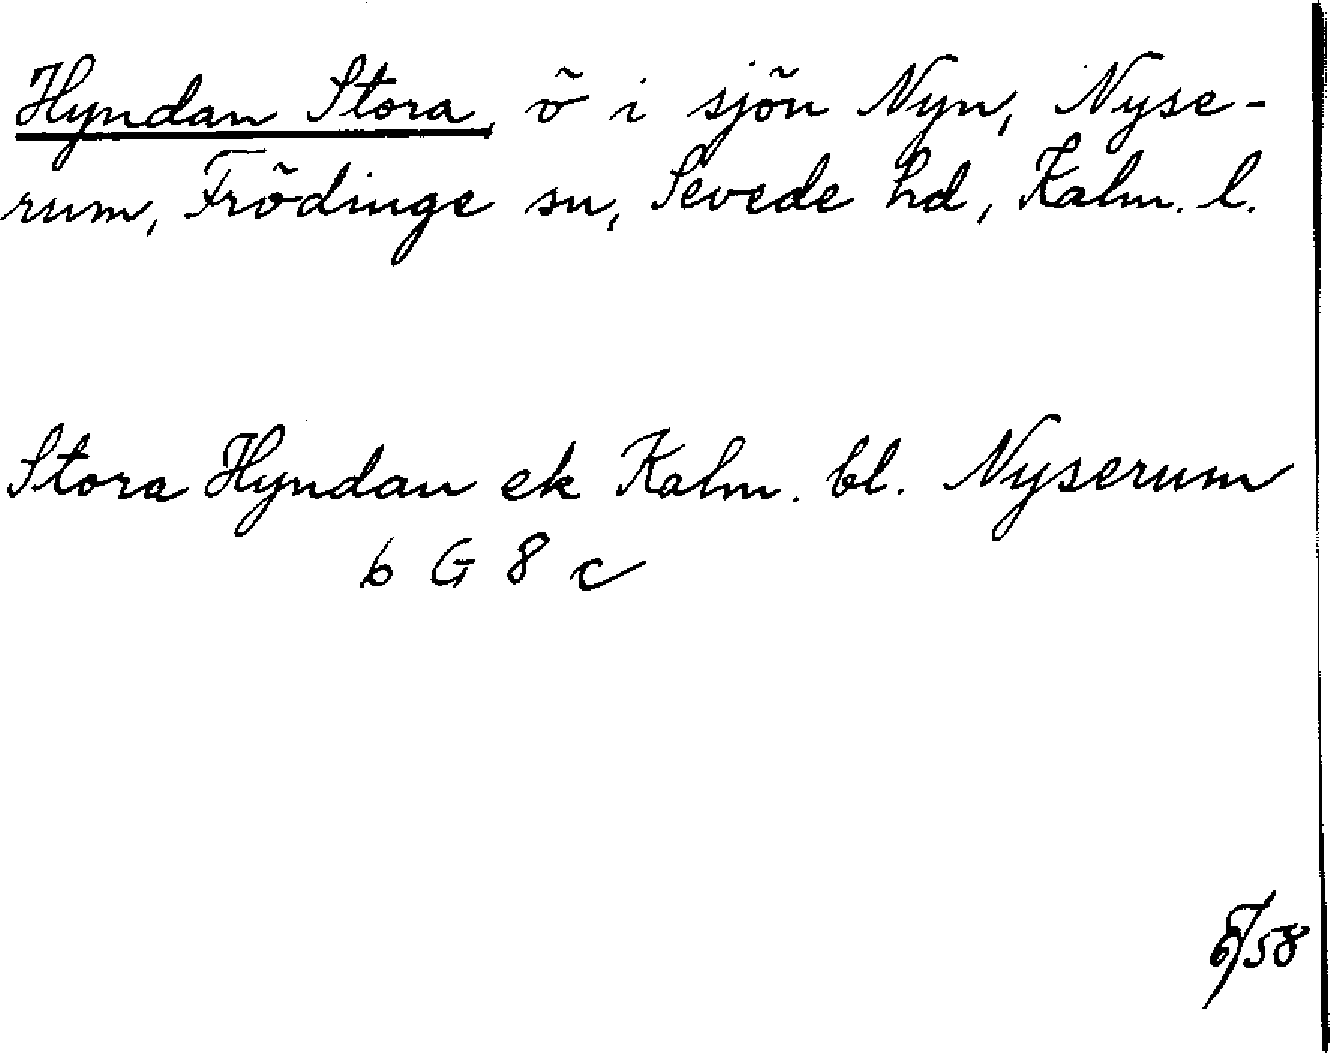 Hyndan Stora, ö i sjön Nyn, Nyse-
rum, Frödinge sn, Sevede hd, Kalm. l.
Stora Hyndan ek Kalm. bl. Nyserum
6 G 8 c